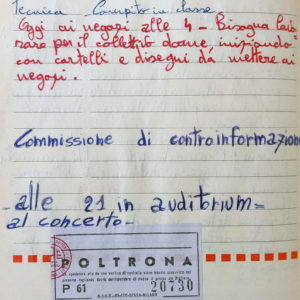 Tecnica Compito in classe
Oggi ai negozi alle 4 - Bisogna lavo=
rare per il collettivo donne, iniziando
con cartelli e disegni da mettere ai
negozi.
Commissione di controinformazione
-alle 21 in auditorium=
al concerto-
POLTRONA
P 61
20730